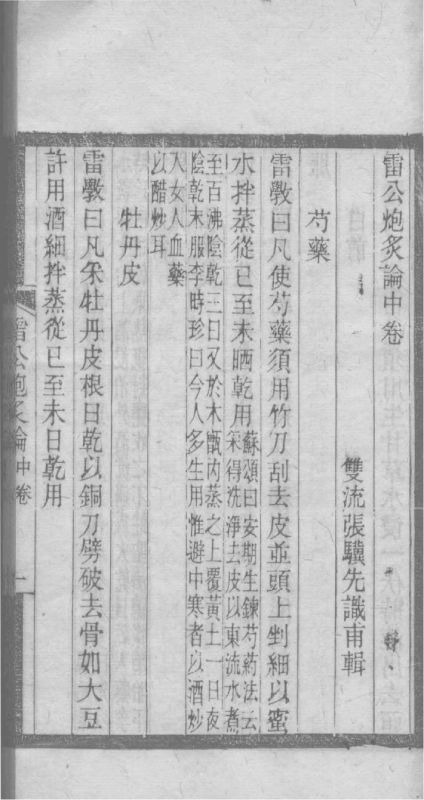 雷公炮炙論中卷
雙流張驥先識甫輯
芍藥
雷斅曰凡使芍藥須用竹刀刮去皮並頭上剉細以蜜
水拌蒸從巳至未晒乾用蘇頌曰安期生鍊芍药法云
采得洗淨去皮以東流水煮
至百沸陰乾三日又於木甑内蒸之上覆黃土一日夜
陰乾末服李時珍曰今人多生用惟避中寒者以酒炒
入女人血藥
以醋炒耳
牡丹皮
雷斅曰凡采牡丹皮根日乾以銅刀劈破去骨如大豆
許用酒細拌蒸從巳至未日乾用
雷公炮炙論中卷
一